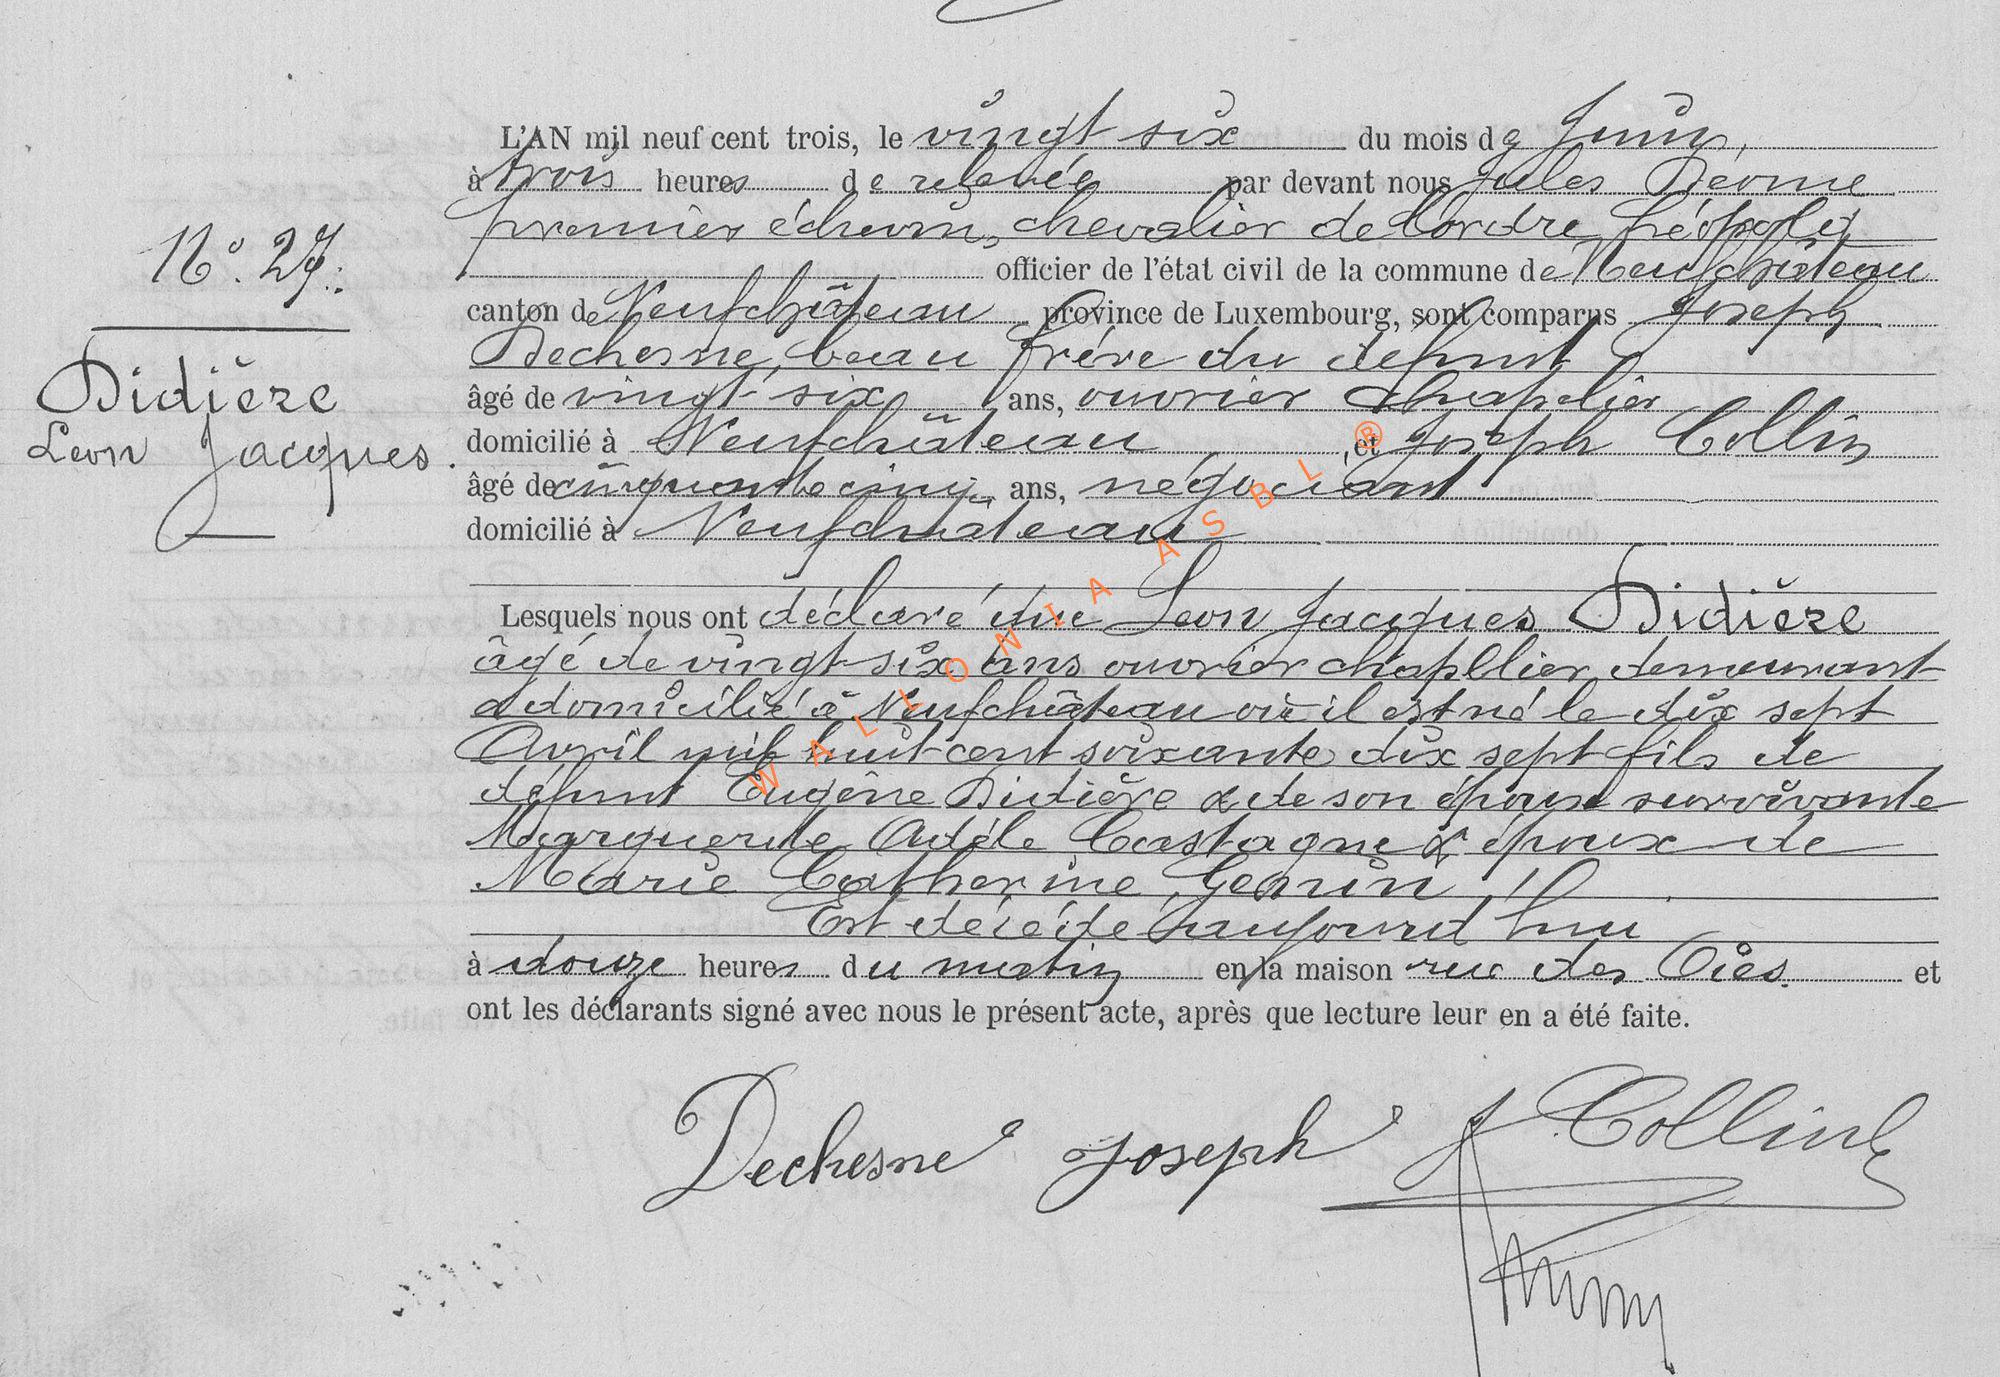 L'AN mil neuf cent trois, le vingt six du mois de Juin,
à trois heures de relevée par devant nous Jules Déome
premier échevin, chevalier de l'ordre Léopold,
officier de l'état civil de la commune de Neufchâteau
N° 27.
canton de Neufchâteau province de Luxembourg, sont comparus Joseph
Dechesne, beau frère du defunt
Didière
âgé de vingt-six ans, ouvrier chapelier
Leon Jacques.
domicilié à Neufchâteau, et Joseph Collin
âgé de cinquante cinq ans, négociant
domicilié à Neufchâteau
Lesquels nous ont déclaré que Leon Jacques Didière
âgé de vingt-six ans ouvrier chapllier demeurant
& domicilié à Neufchâteau où il est né le dix sept
Avril mil huit cent soixante dix sept fils de
défunt Eugène Didière & de son épouse survivante
Marguerite Adèle Castagne & époux de
Marie Catherine Genin
Est décédé aujourd'hui
à douze heures du matin en la maison rue des Oies. et
ont les déclarants signé avec nous le présent acte, après que lecture leur en a été faite.
Dechesne Joseph J Collin
WALLONIA ASBL ®